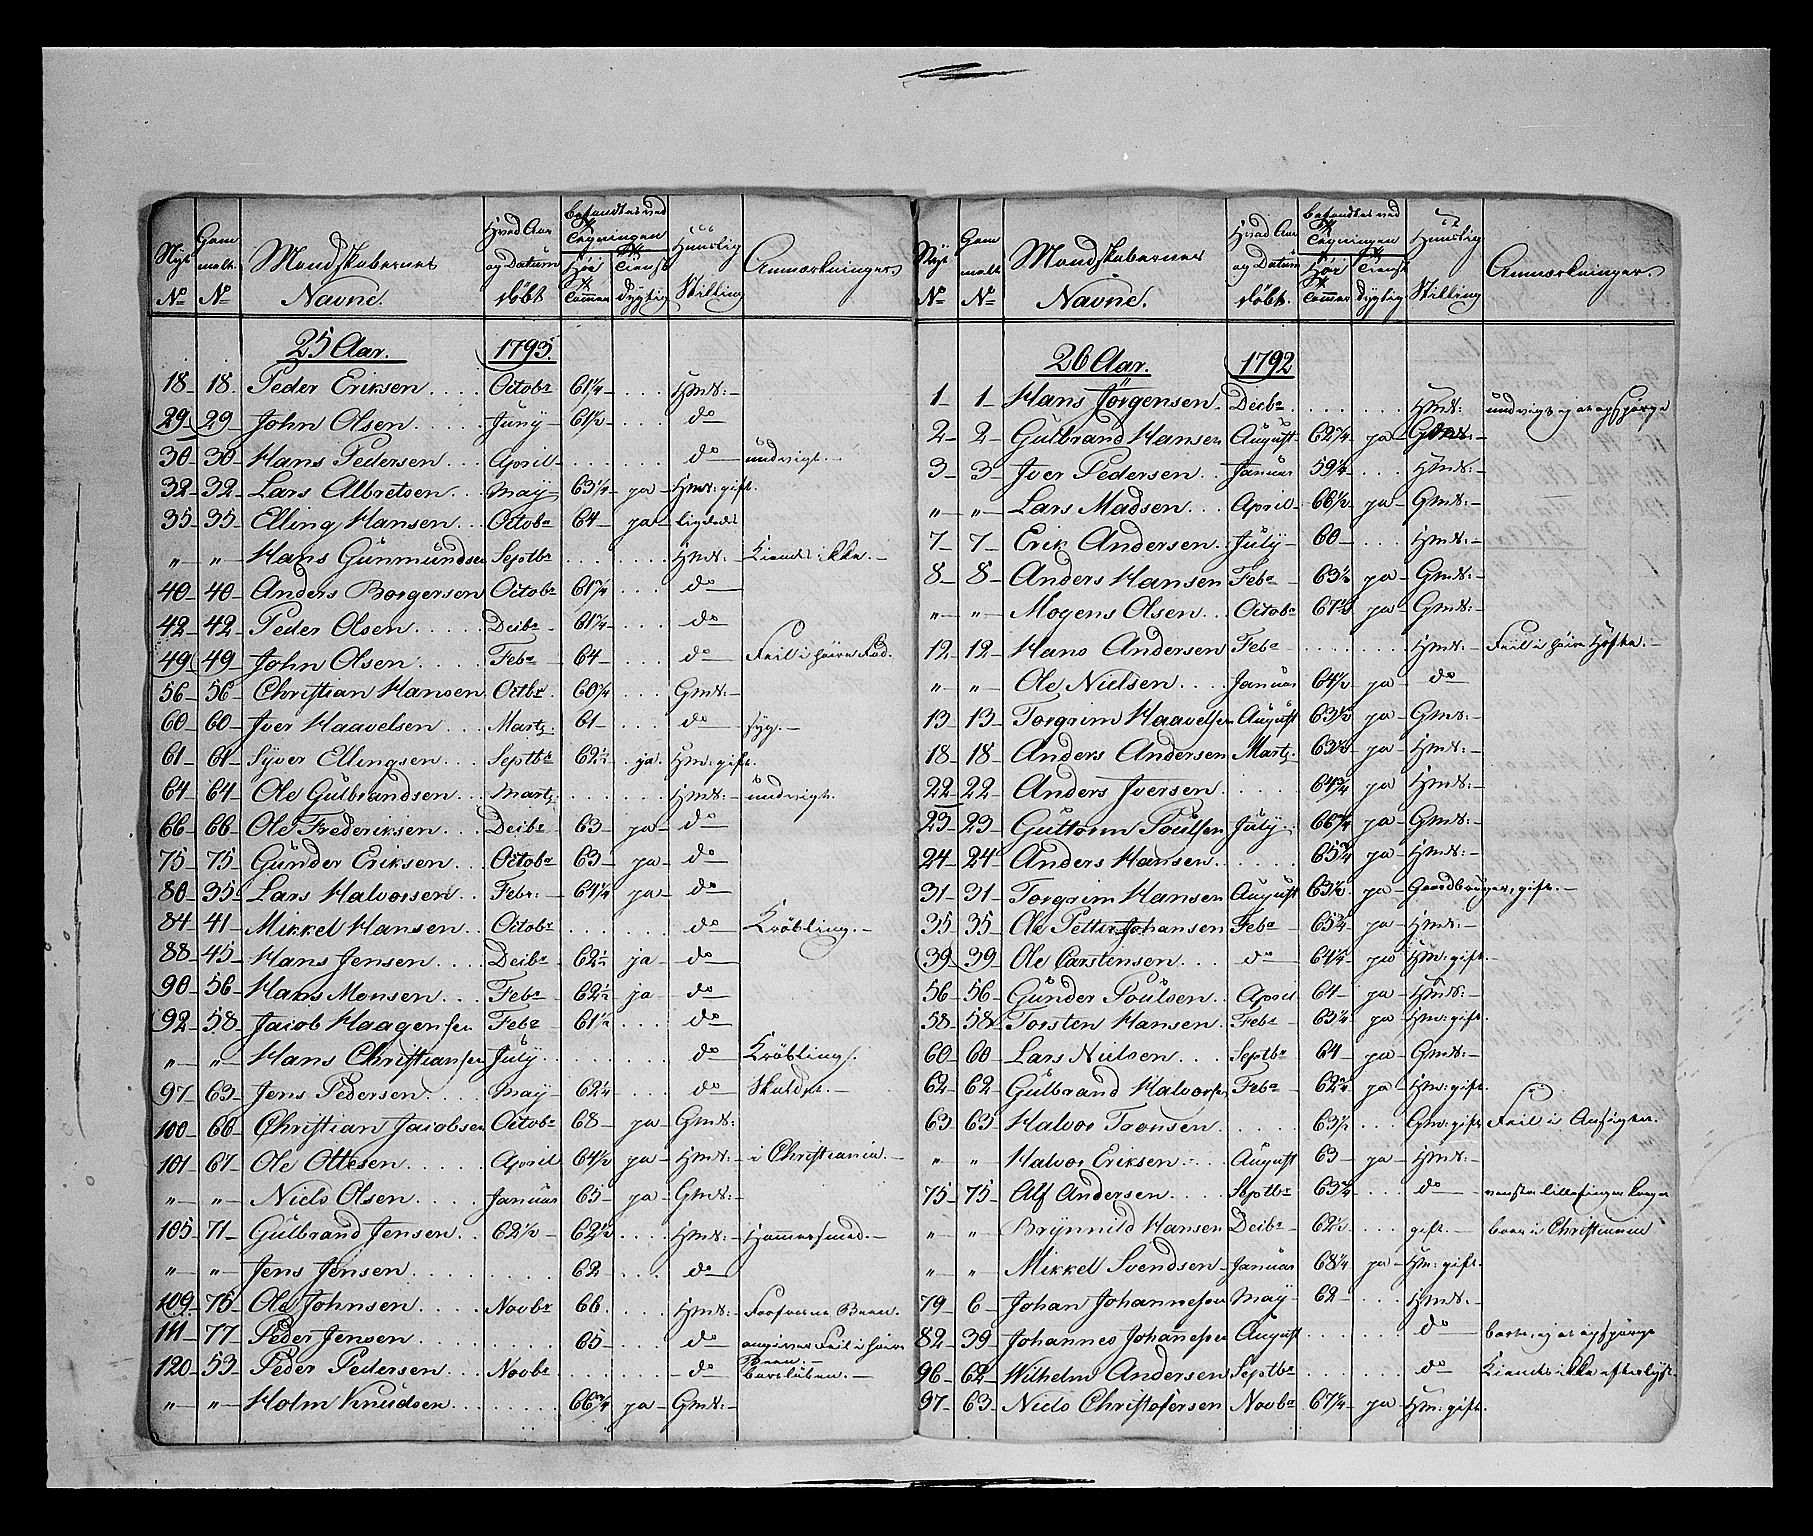 Nye No | Gamle No | Mandskabernes Navne. | Hvad Aar og Datum døbt | befandtes ved Tegningen Høi Tommer | Tienst dygtig | Huuslig Stilling | Anmærkninger.
25 Aar. 1793.
18 18. Peder Eriksen Octobr 61¼ Hmd:
29 29 John Olsen Juny 61½ do
30 30 Hans Pedersen April do undvigt.
32 32 Lars Albretsen May 63¼ ja Hmd: gift.
35 35 Elling Hansen Octobr 64 ja ligeledes
" " Hans Günmündsen Septbr Hmd: Kiendes ikke.
40 40 Anders Borgersen Octobr 61¼ do
42 42 Peder Olsen Decbr 61¼ do
49 49 John Olsen Febr 64 do Feil i høire Fod.
56 56 Christian Hansen Octbr. 60¼ Gmd:
60 60 Iver Haavelsen Martz 61 do syg.
61 61 Syver Ellingsen Septbr 62½ ja. Hm: gift.
64 64 Ole Gülbrandsen Martz Hmd: undvigt.
66 66 Ole Frederiksen Decbr 63 ja do
75 75 Günder Eriksen Octobr 63 ja do
80 35 Lars Halvorsen Febr: 61¼ ja do
84 41 Mikkel Hansen Octobr do Krøbling.
88 45 Hans Jensen Decbr 62½ ja do
90 56 Hans Monsen Febr 62½ ja do
92 58 Jacob Haagensen Febr 61½ do
" " Hans Christiansen July do Krøbling.
97 63 Jens Pedersen May 62¼ do Skaldet.
100 66 Christian Jacobsen Octobr 68 ja Gmd:
101 67 Ole Ottesen April 64½ ja Hmd: i Christiania.
" " Niels Olsen Januar 65 ja Gmd:
105 71 Gülbrand Jensen 62½ 62½ Hmd: Hammersmed.
" " Jens Jensen 62 do
109 75 Ole Johnsen Novbr 66 Hmd: Forfrosne Been.
111 77 Peder Jensen 65 do angiver Feil i høire Been.
120 53 Peder Pedersen Novbr do bortløben.
" " Holm Knüdsen 66¾ ja Gmd:
Nye No | Gamle No | Mandskabernes Navne. | Hvad Aar og Datum døbt. | befandtes ved Tegningen Høi Tommer | Tienst dygtig | Huuslig Stilling | Anmærkninger.
26 Aar. 1792
1 1 Hans Jörgensen Decbr Hmd: undvigt ej at opspørge
2 2 Gülbrand Hansen August 62¼ ja Gmd:
3 3 Iver Pedersen Januar 59¼ Hmd:
" " Lars Madsen April 66½ ja Gmd:
7 7 Erik Andersen July 60 Hmd:
8 8 Anders Hansen Febr 63½ ja Gmd:
" " Mogens Olsen Octobr 67½ ja Gmd:
12 12 Hans Andersen Febr Hmd: Feil i høire Hofte.
" " Ole Nielsen Januar 64½ ja do
13 13 Torgrim Haavelsen August 63½ ja Gmd:
18 18 Anders Andersen Martz. 63½ ja Hmd:
22 22 Anders Iversen 64¾ ja Hmd:
23 23 Güttorm Poülsen July 66¾ ja Gmd:
24 24 Anders Hansen 65¾ ja Hmd:
31 31 Torgrim Hansen August 63½ ja Gaardbruger, gift.
35 35 Ole Petter Johansen Febr 65¾ ja Hmd:
39 39 Ole Carstensen do 64¼ ja Hm: gift.
56 56 Günder Poülsen April 64 ja Hmd:
58 58 Torsten Hansen Febr 63¼ ja Hm: gift.
60 60 Lars Nielsen Septbr 64 ja Gmd:
62 62 Gülbrand Halvorsen Febr 62¾ ja Hm: gift.
63 63 Halvor Tronsen 63½ Gm: gift Feil i Ansigtet.
" " Halvor Eriksen August 63 ja Hmd:
75 75 Alf Andersen Septbr 63¼ do venstre lillefinger
" " Brynnild Hansen Decbr 62½ gift. boer i Christiania
" " Mikkel Svendsen Januar 68¼ ja Hm: gift.
79 6 Johan Johannesen May 62 Hmd:
82 39 Johannes Johannesen August do borte, ej at opspørge
96 62 Wilhelm Andersen Septbr do Kiendes ikke efterlyst.
97 63 Niels Christofersen Novbr 67¼ ja Hm: gift.